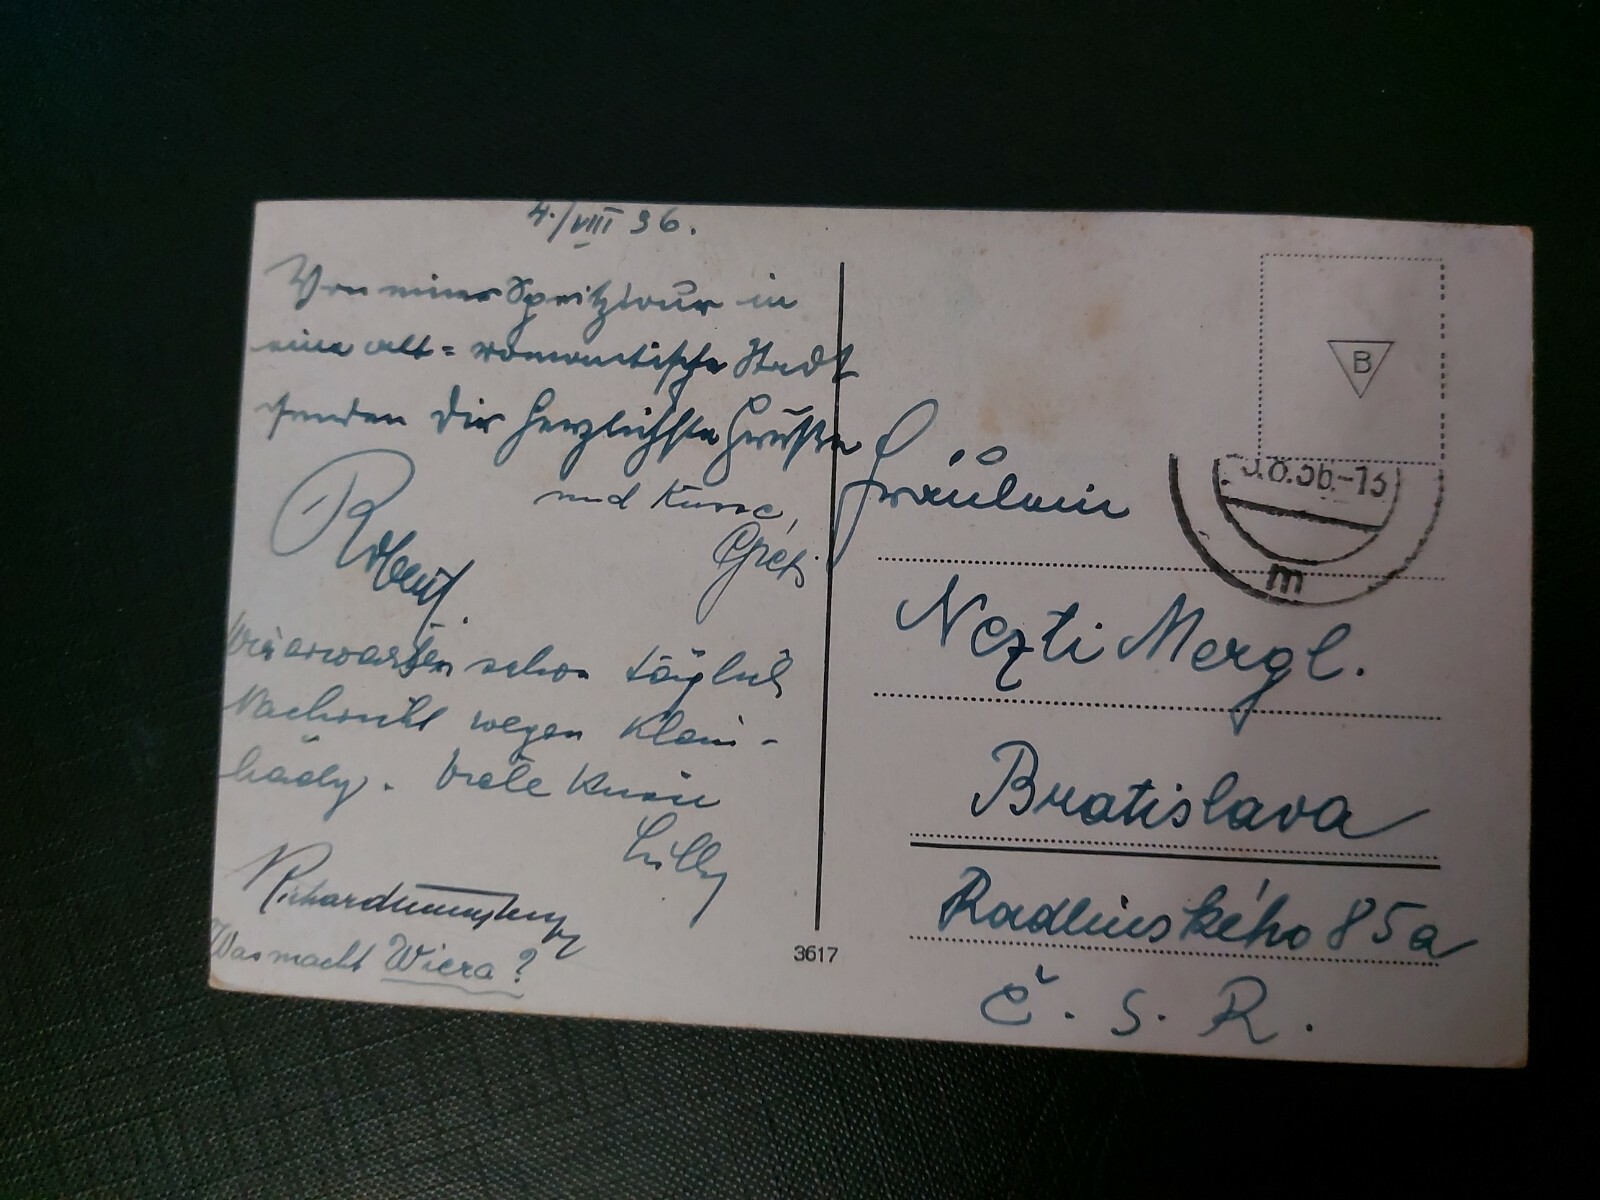 4./VIII 36.
Von einer Spritztour in
eine alt=romantische Stadt
senden Dir herzlichste Grüße
und Küsse,
Robert.
Wir erwarten schon täglich
Nachricht wegen Klein-
. Viele Küsse
Lilly
Richard
Was macht Wiera?
3617
B
.8.36.-13
m
Fräulein
Nezti Mergl.
Bratislava
Radlinského 85a
Č. S. R.